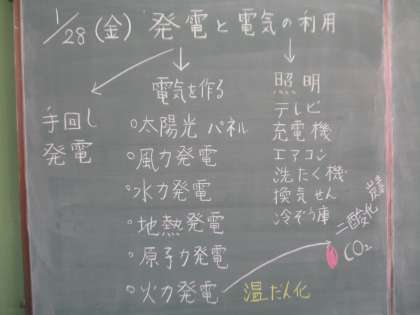 1/28(金) 発電と電気の利用
手回し
発電
電気を作る
○太陽光パネル
○風力発電
○水力発電
○地熱発電
○原子力発電
○火力発電
温だん化
照明
テレビ
充電機
エアコン
洗たく機
換気せん
冷ぞう庫
二酸化炭素
CO₂